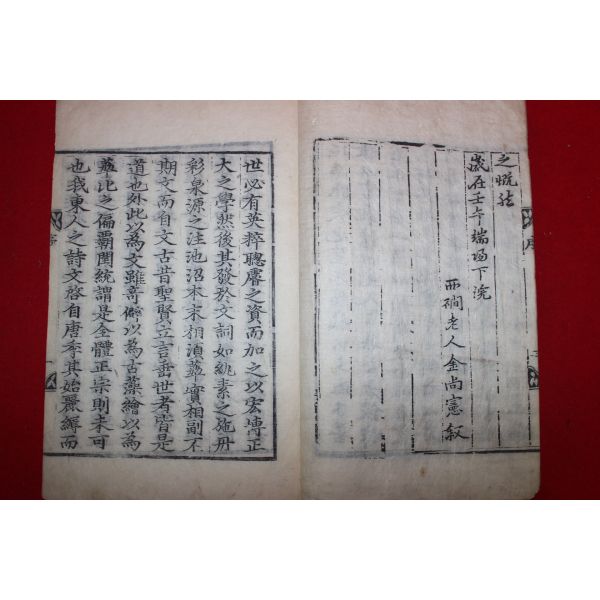 之悦法
歳在壬午端陽下浣
西磵老人金尚憲叙
序
世必有英粹聰睿之資而加之以宏博正
大之學然後其發於文詞如絺素之施丹
彩泉源之注池沼本末相須華實相副不
期文而自文古昔聖賢立言垂世者皆是
道也外此以為文雖奇僻以為古藻繪以為
麗比之偏霸閏統謂是全體正宗則未可
也我東人之詩文啓自唐季其始麗縟而
序